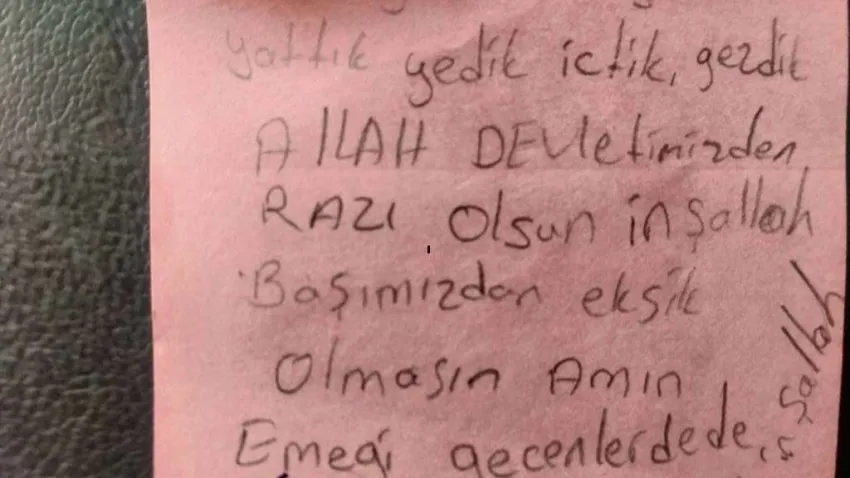 yattık yedik içtik, gezdik
AllAH DEVletimizden
RAZI Olsun inşallah
Başımızdan eksik
Olmasın Amin
Emeği geçenlerdede, inşallah